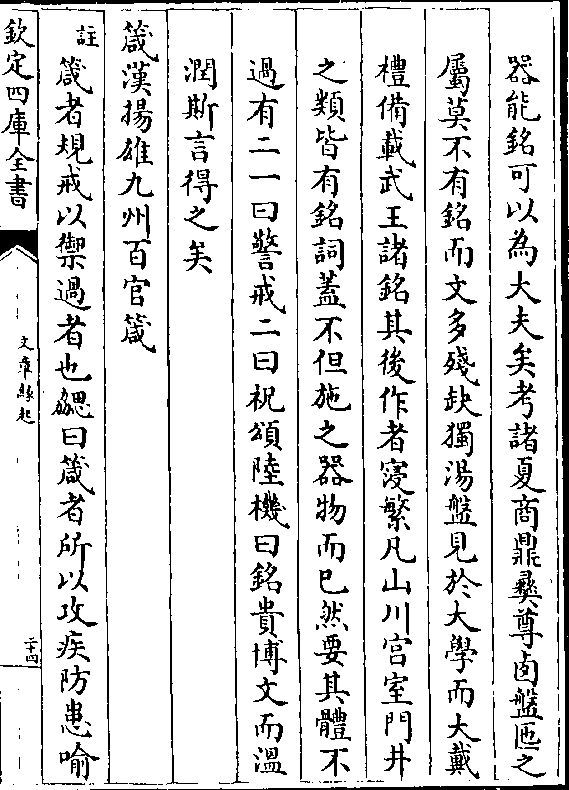 器能銘可以為大夫矣考諸夏商鼎彝尊卣盤匜之
屬莫不有銘而文多殘缺獨湯盤見於大學而大戴
禮備載武王諸銘其後作者寖繁凡山川宫室門井
之類皆有銘詞蓋不但施之器物而已然要其體不
過有二一曰警戒二曰祝頌陸機曰銘貴博文而溫
潤斯言得之矣
箴漢揚雄九州百官箴
註箴者規戒以禦過者也勰曰箴者所以攻疾防患喻
欽定四庫全書
文章緣起
二十四